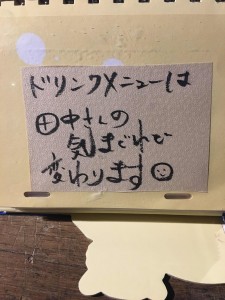 ドリンクメニューは
田中さんの
気まぐれで
変わります